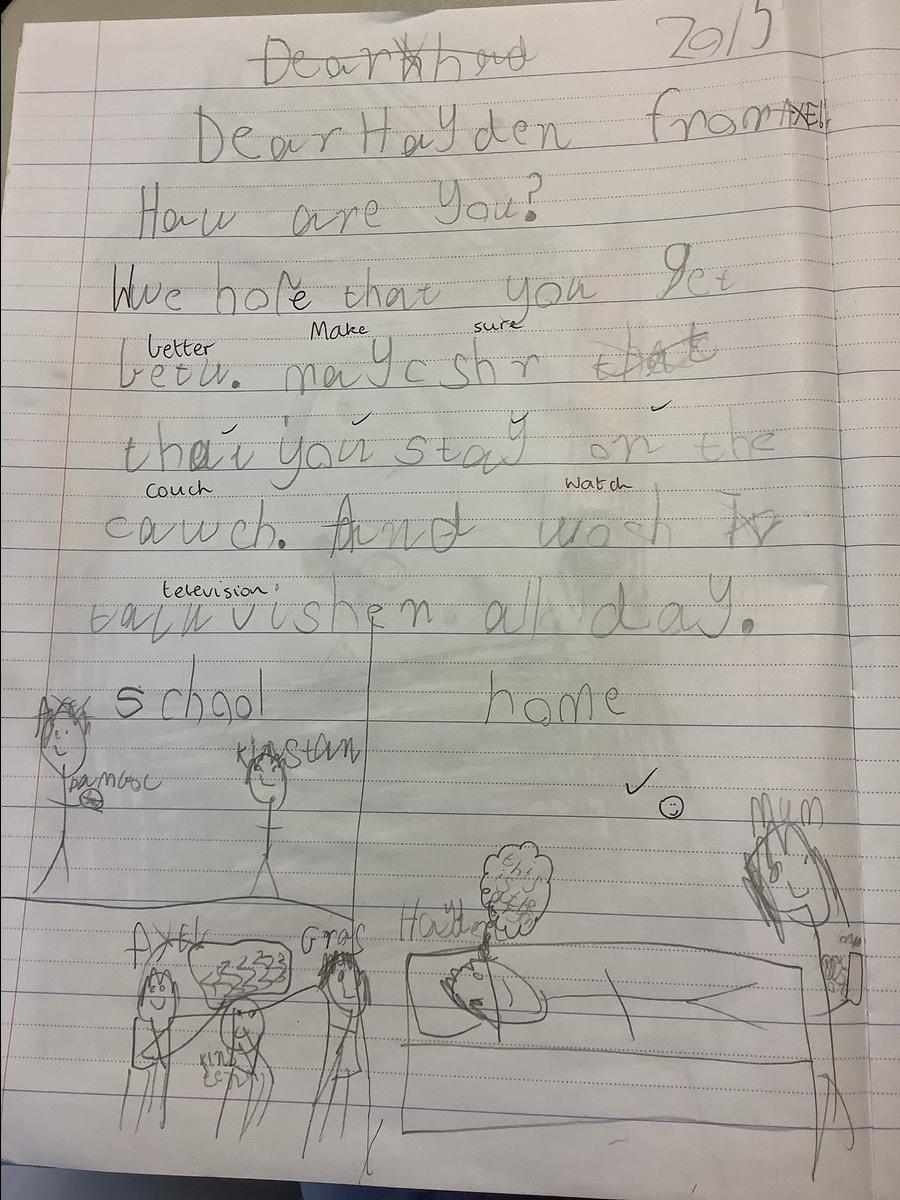 Dear 2015
Dear Hayden from AXEL
Haw are you?
Wwe hope that you get
better Make sure
betu. mayc shr that
that you stay on the
couch watch
cawch. And woch Tv
television
all day.
school home
Mum
Hayden
AXEL Gras